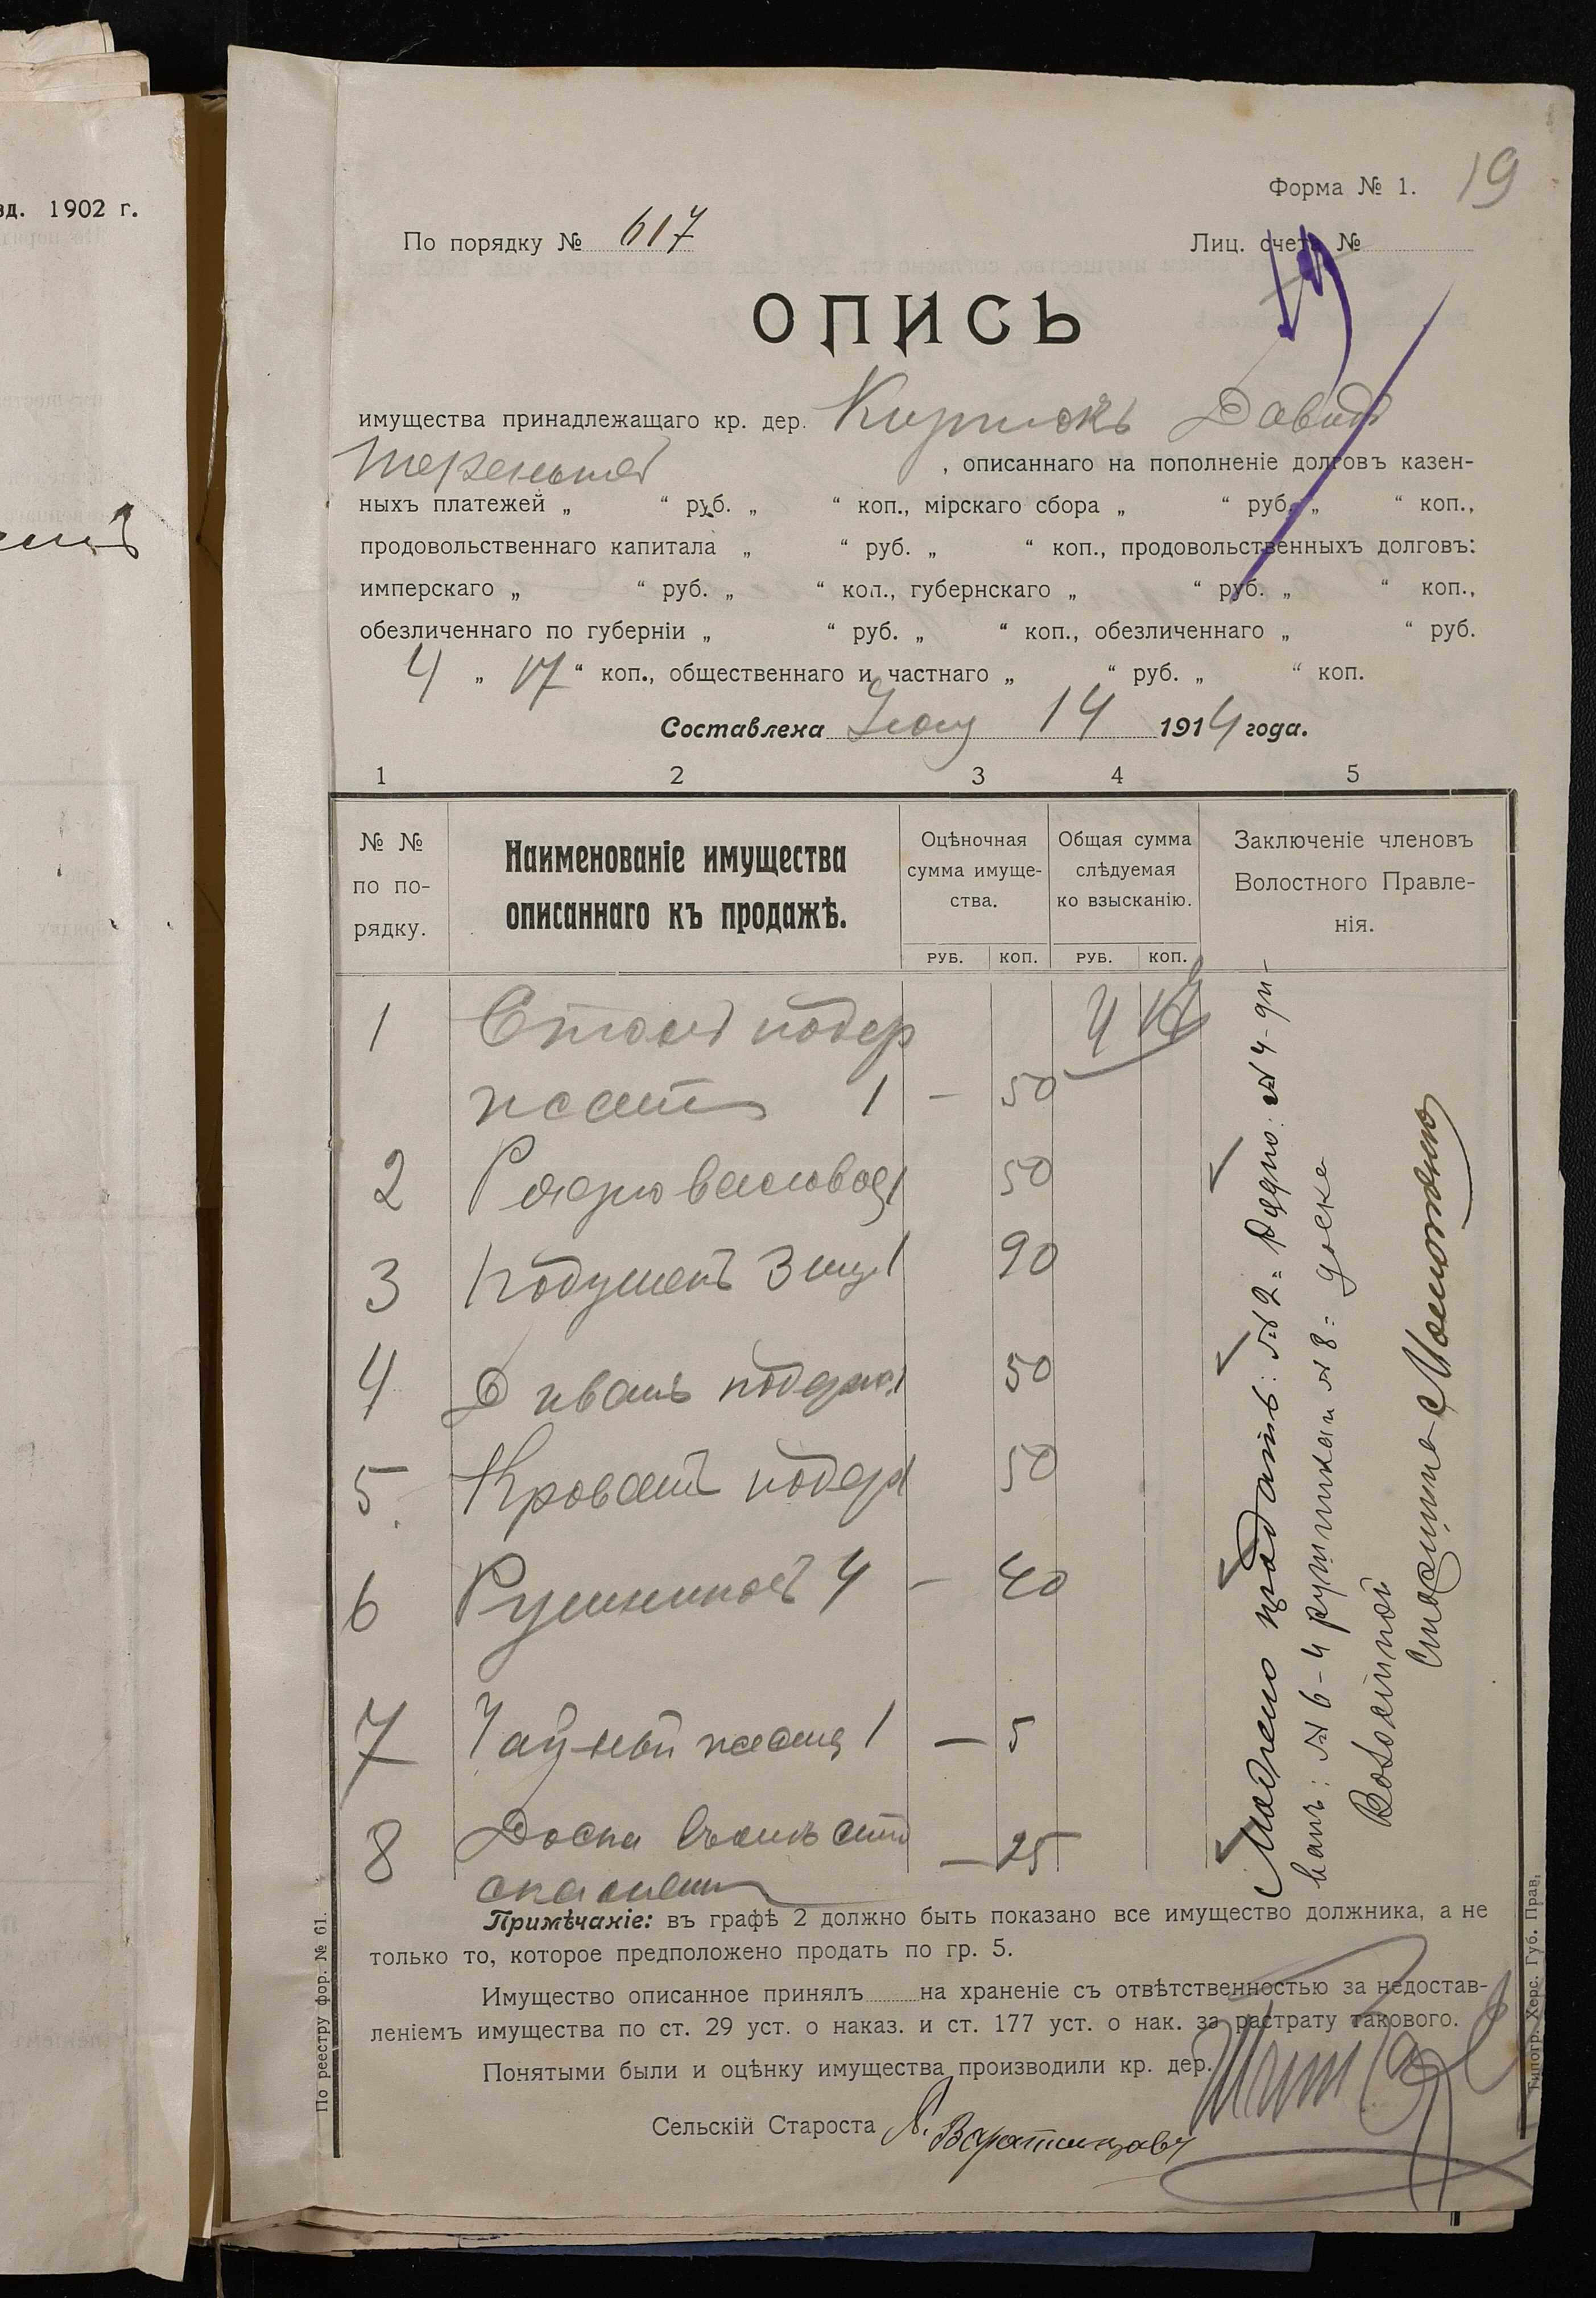 зд. 1902 г.
Форма № 1. 19
По порядку № 617
Лиц. счета № 19
ОПИСЬ
имущества принадлежащаго кр. дер. Давид
, описаннаго на пополненіе долговъ казен-
ныхъ платежей „ “ руб. „ “ коп., мірскаго сбора „ “ руб. „ “ коп.,
продовольственнаго капитала „ “ руб. „ “ коп., продовольственныхъ долговъ:
имперскаго „ “ руб. „ “ коп., губернскаго „ “ руб. „ “ коп.,
обезличеннаго по губерніи „ “ руб. „ “ коп., обезличеннаго „ “ руб.
4 „ 17 “ коп., общественнаго и частнаго „ “ руб. „ “ коп.
Составлена 14 1914 года.
1 2 3 4 5
№ № по по-рядку.
Наименованіе имущества
описаннаго къ продажѣ.
Оцѣночная
сумма имуще-
ства.
Общая сумма
слѣдуемая
ко взысканію.
Заключеніе членовъ
Волостного Правле-
нія.
РУБ. КОП. РУБ. КОП.
1 Столъ подер 4 17
1 — 50
2 Рядно 1 50
3 Подушекъ 3 шт 90
4 Диванъ подерж 50
5 Кровать подер 50
6 Рушниковъ 4 — 40
7 Чайный 1 — 5
8 Доска — 25
Можно продать: № 2 = Рядно: № 4 - ди-
ванъ: № 6 - 4 рушника и № 8 = доска
Волостной
Старшина
Примѣчаніе: въ графѣ 2 должно быть показано все имущество должника, а не
только то, которое предположено продать по гр. 5.
Имущество описанное принялъ на храненіе съ отвѣтственностью за недостав-
леніемъ имущества по ст. 29 уст. о наказ. и ст. 177 уст. о нак. за растрату такового.
Понятыми были и оцѣнку имущества производили кр. дер.
Сельскій Староста
По реестру фор. № 61.
Типогр. Херс. Губ. Прав.